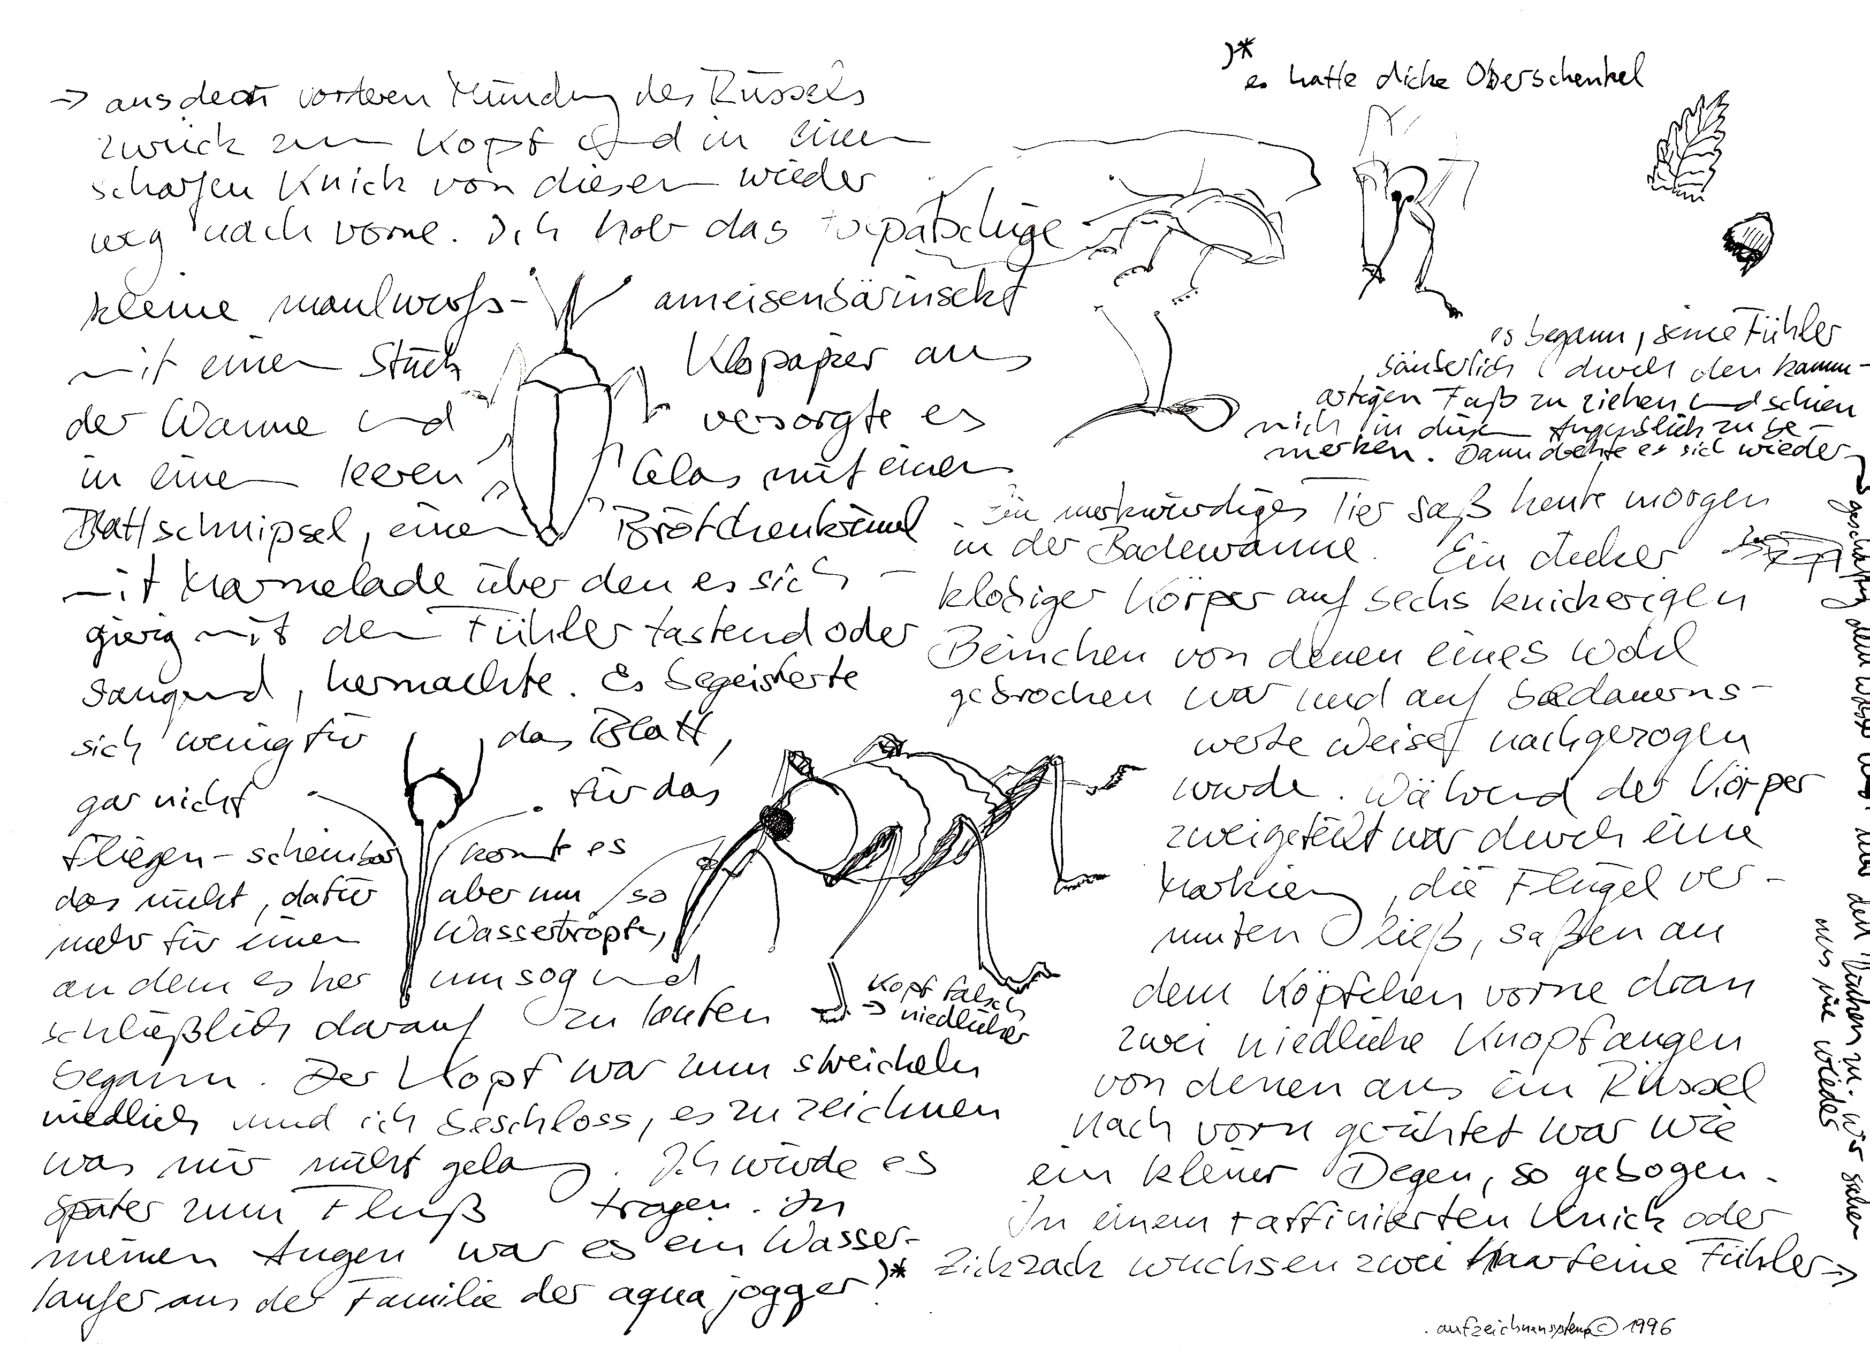 Ein merkwürdiges Tier saß heute morgen
in der Badewanne. Ein dicker
klobiger Körper auf sechs knickerigen
Beinchen von denen eines wohl
gebrochen war und auf bedauerns-
werte Weise nachgezogen
wurde. Während der Körper
zweigeteilt war durch eine
Markierg, die Flügel ver-
muten ließ, saßen an
dem Köpfchen vorne dran
zwei niedliche Knopfaugen
von denen aus ein Rüssel
nach vorn gerichtet war wie
ein kleiner Degen, so gebogen.
In einem raffinierten Knick oder
Zickzack wuchsen zwei haarfeine Fühler →
→ aus der vorderen Mündung des Rüssels
zurück zum Kopf und in einem
scharfen Knick von diesem wieder
weg nach vorne. Ich hob das tolpatschige
kleine maulwurfs- ameisenbärinsekt
mit einem Stück Klopapier aus
der Wanne und versorgte es
in einem leeren Glas mit einem
Blattschnipsel, einem Brötchenkrümel
mit Marmelade über den es sich -
gierig mit den Fühler tastend oder
saugend, hermachte. Es begeisterte
sich wenig für das Blatt,
gar nicht für das
fliegen - scheinbar konnt es
das nicht, dafür aber um so
mehr für einen Wassertropfen,
an dem es herumsog und
schließlich darauf zu laufen
begann. Der Kopf war zum streicheln
niedlich und ich beschloss, es zu zeichnen
was mir nicht gelang. Ich würde es
später zum Fluß tragen. In
meinen Augen war es ein Wasser-
läufer aus der Familie der aqua jogger.)*
Kopf falsch
→ niedlicher
)*
es hatte dicke Oberschenkel
es begann, seine Fühler
säuberlich durch den kamm-
artigen Fuß zu ziehen und schien
mich in diesem Augenblick zu be-
merken. Dann drehte es sich wieder
geschäftig dem Wasser und den zu. wir sahen
uns nie wieder
aufzeichnensystem © 1996